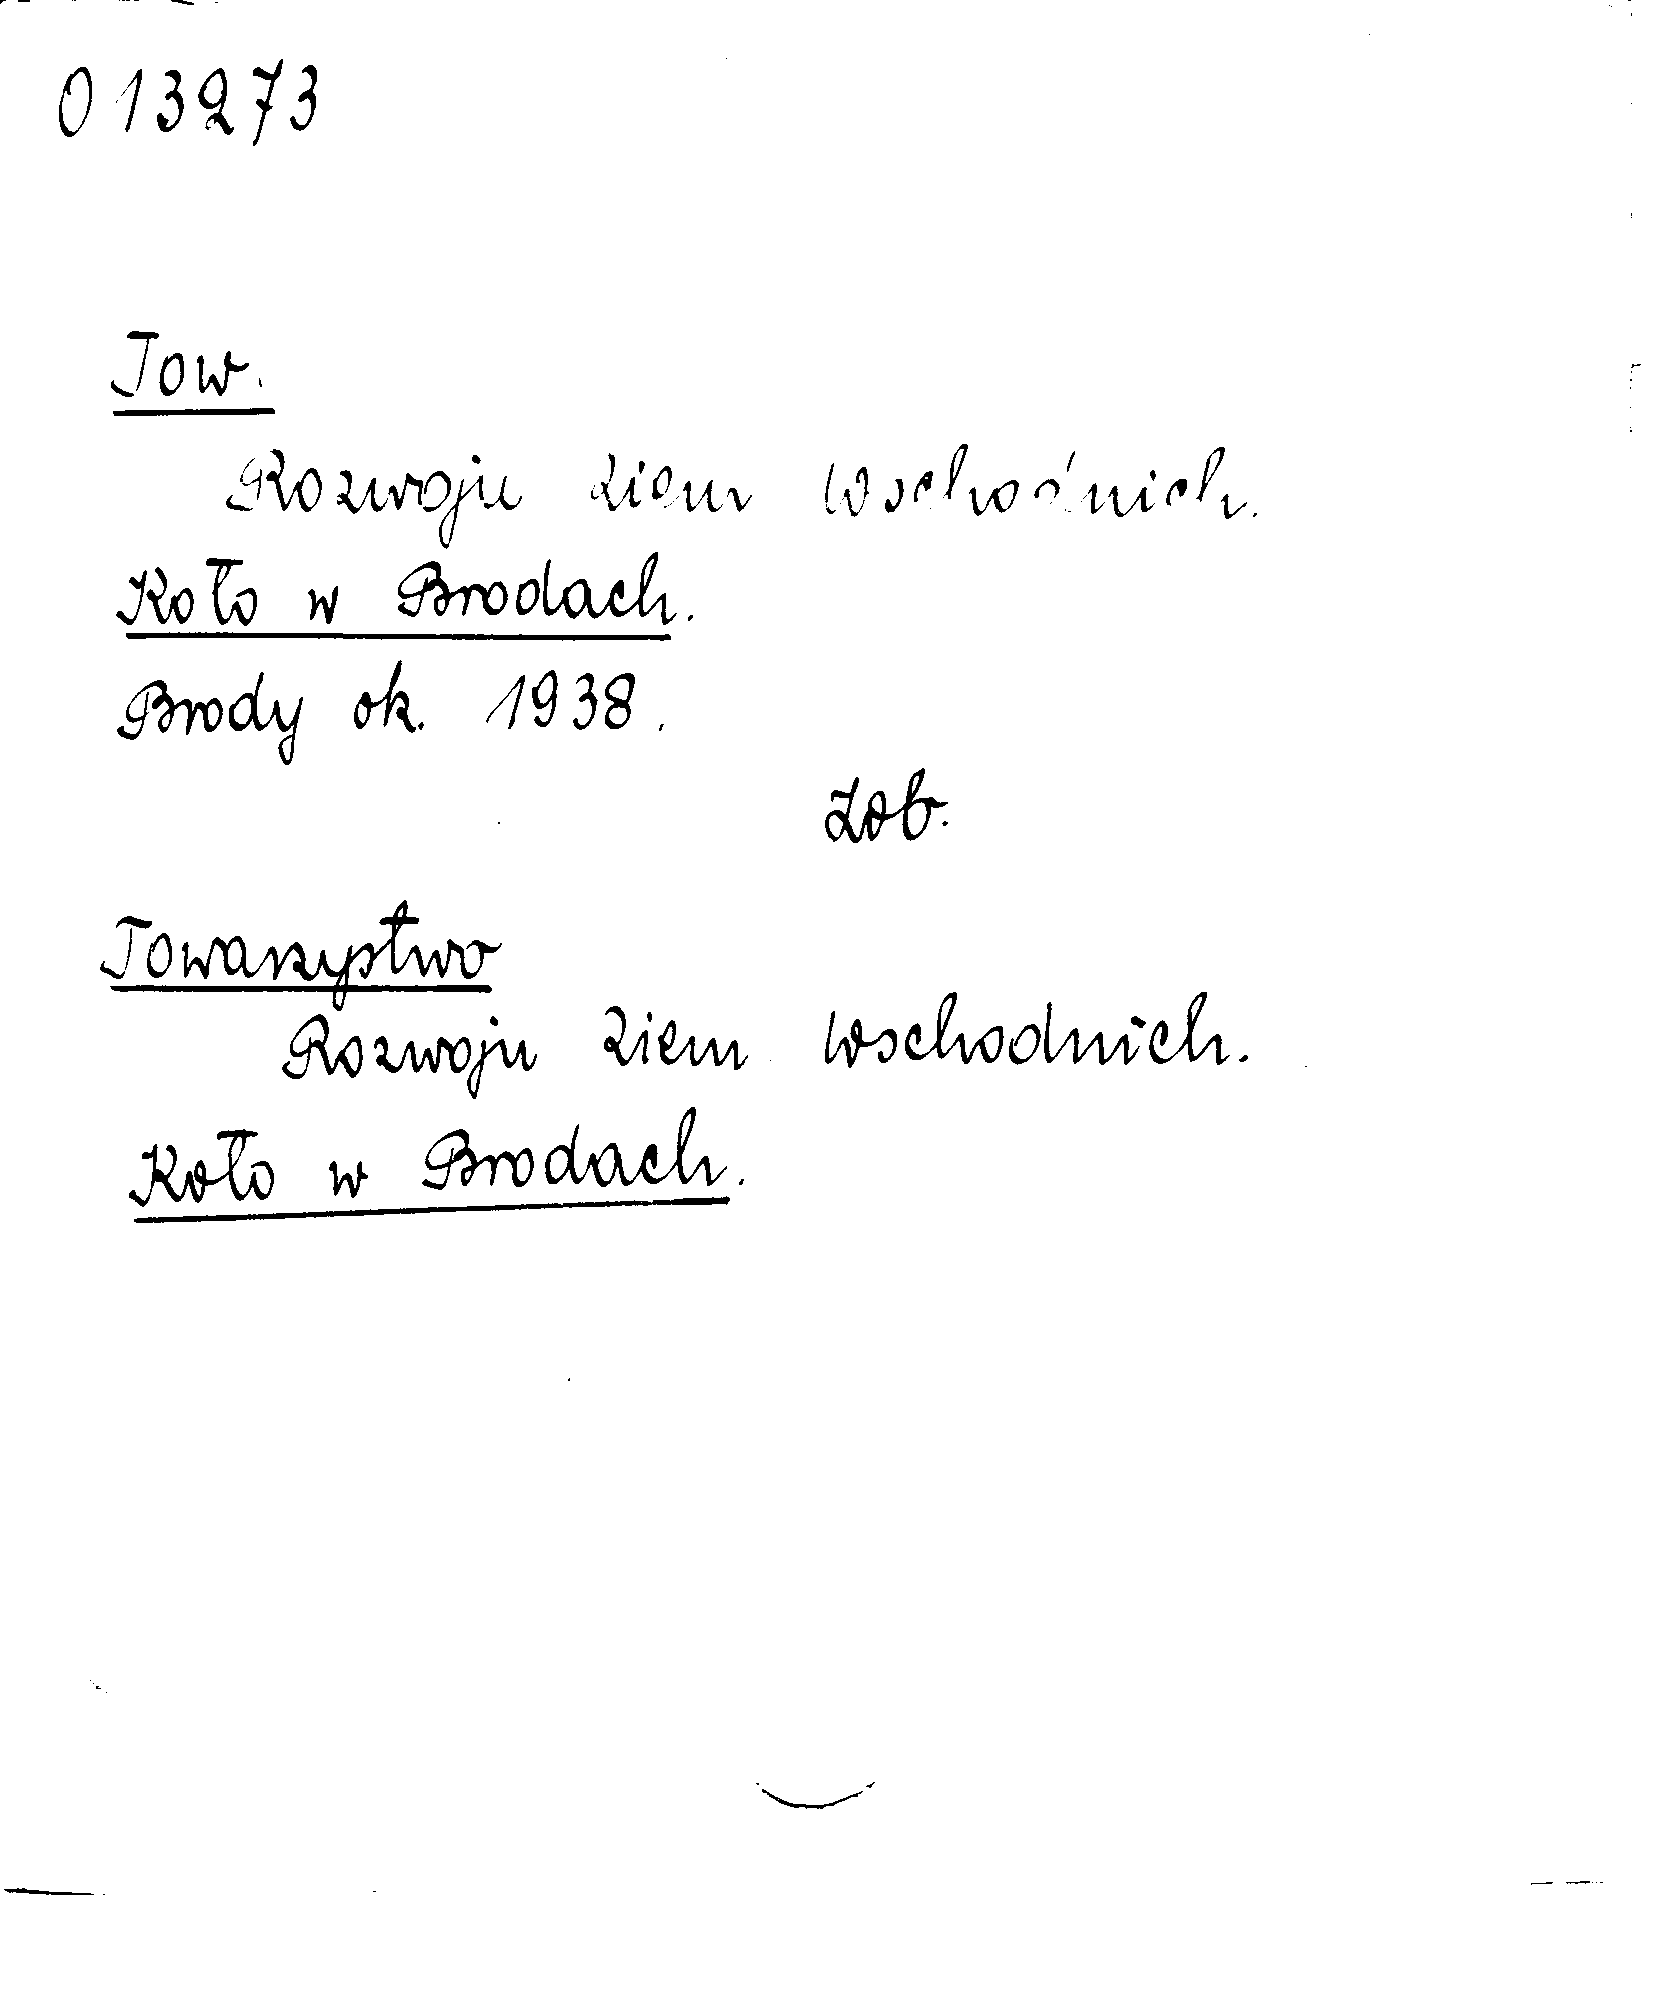 013273
Tow.
Rozwoju Ziem Wschodnich.
Koło w Brodach.
Brody ok. 1938.
Zob.
Towarzystwo
Rozwoju Ziem Wschodnich.
Koło w Brodach.